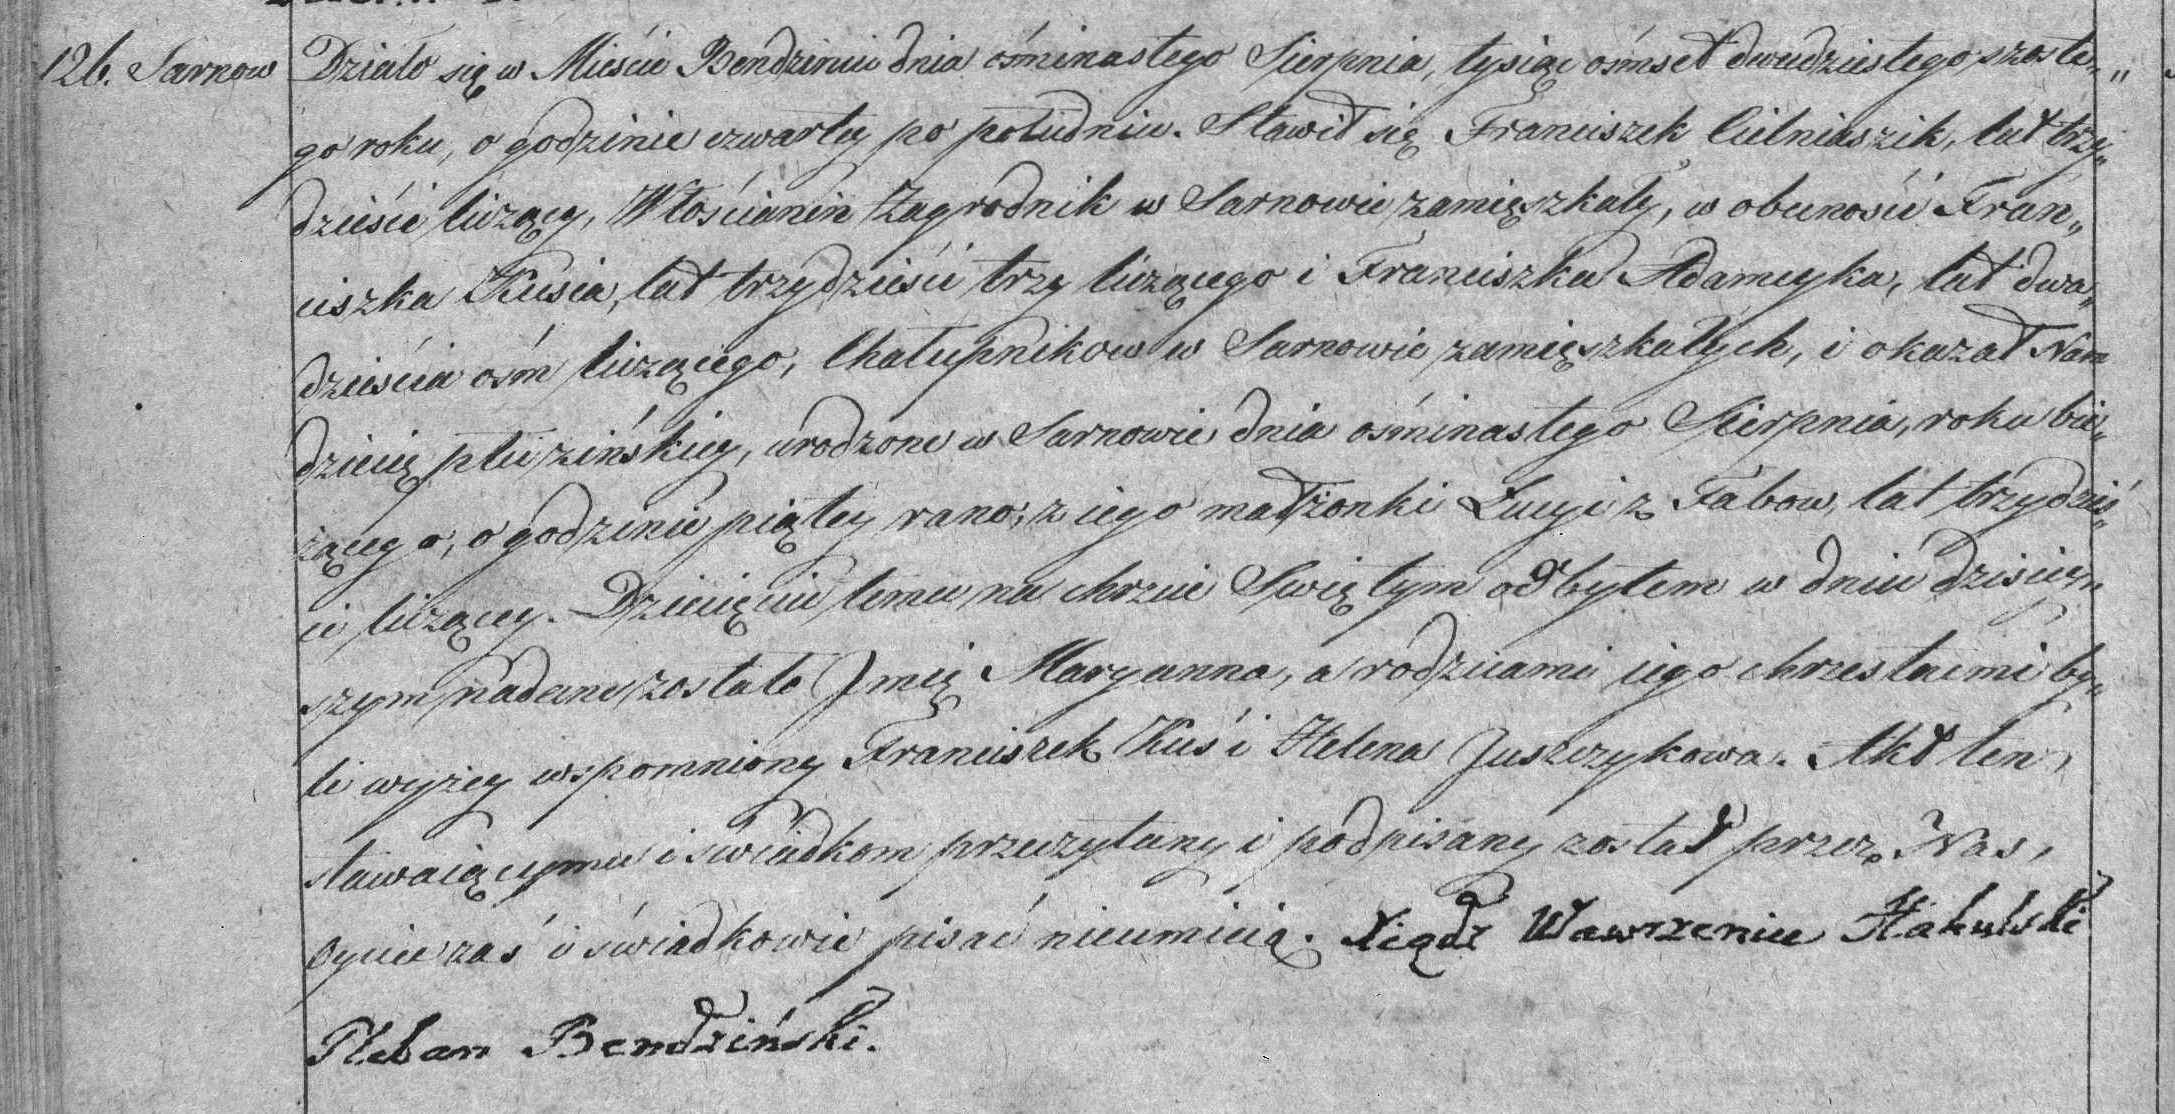 126. Sarnow Działo się w Mieście Bendzinie dnia ośminastego Sierpnia, tysiąc ośmset dwudziestego szoste„
go roku, o godzinie czwartey po południu. Stawił się Franciszek Cielniaszik, lat trzy„
dzieści liczący, Włościanin Zagrodnik w Sarnowie zamięszkały, w obecności Fran„
ciszka Kusia, lat trzydzieści trzy liczącego i Franciszka Adamczyka, lat dwa„
dzieścia ośm liczącego, Chałupnikow w Sarnowie zamięszkałych, i okazał Nam
dziecię płci żińskiey, urodzone w Sarnowie dnia ośminastego Sierpnia, roku bie„
żącego, o godzinie piątey rano, z iego małżonki Łucyi z Fabow, lat trzydzieś„
ci liczącey. Dziecięciu temu na chrzcie Swiętym odbytem w dniu dzisiey„
szym nadane zostało Jmię Maryanna, a rodzicami iego chrzestnemi by„
li wyżey wspomniony Franciszek Kuś i Helena Juszczykowa. Akt ten,
stawaiącymu i świadkom przeczytany i podpisany został przez Nas,
Oyciec zaś i świadkowie pisać nieumieią. Xiądz Wawrzeniec Hakulski
Pleban Bendziński.